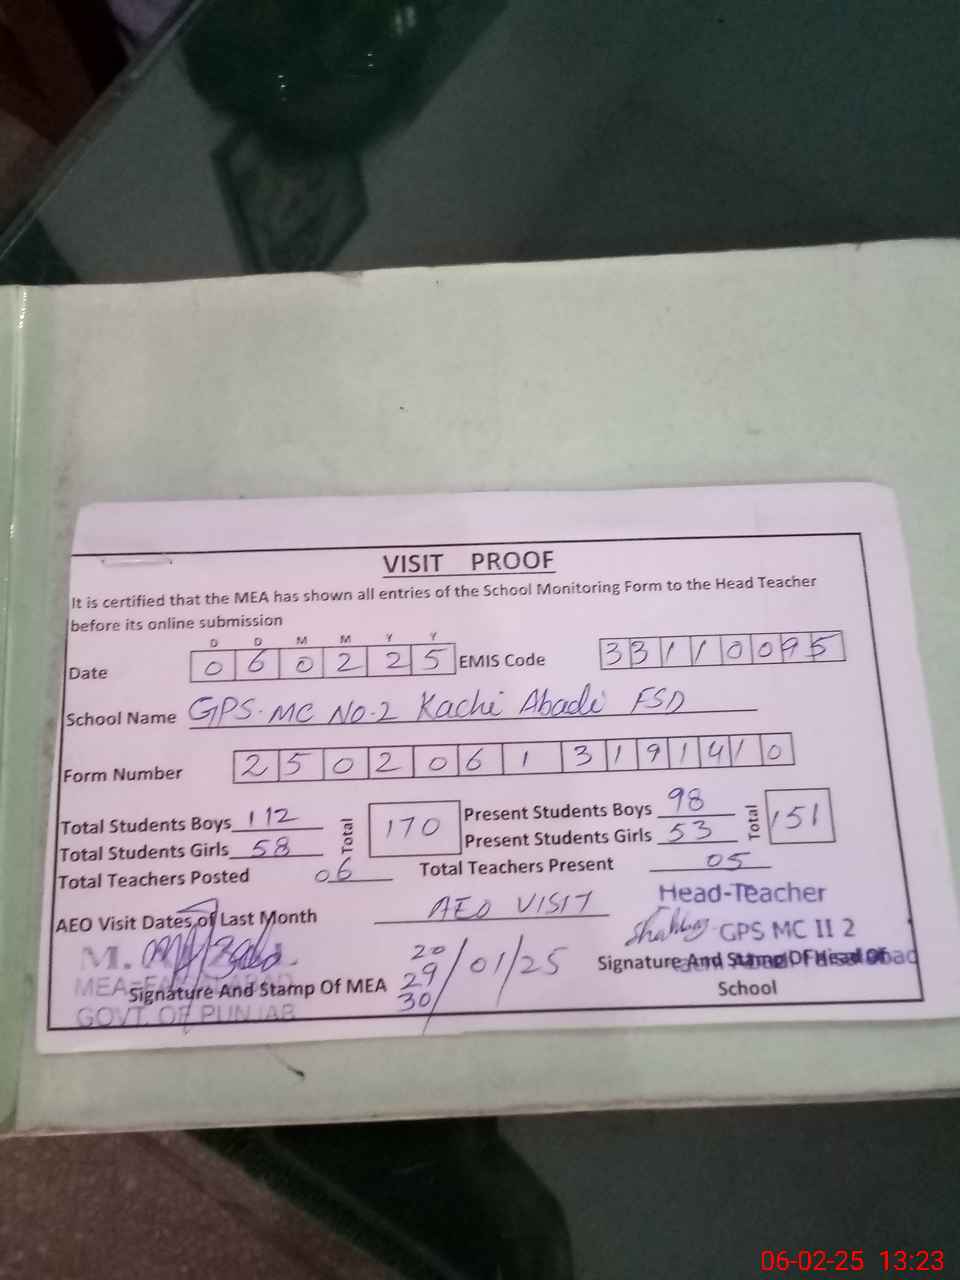 VISIT PROOF
It is certified that the MEA has shown all entries of the School Monitoring Form to the Head Teacher
before its online submission
D D M M Y Y
Date 0 6 0 2 2 5 EMIS Code 3 3 1 1 0 0 9 5
School Name GPS. MC No.2 Kachi Abadi FSD
Form Number 2 5 0 2 0 6 1 3 1 9 1 4 1 0
Total Students Boys 112 Total 170 Present Students Boys 98 Total 151
Total Students Girls 58 Present Students Girls 53
Total Teachers Posted 06 Total Teachers Present 05
AEO Visit Dates of Last Month AEO VISIT
20
29 /01/25
30
Head-Teacher
GPS MC II 2
M.
MEA
GOVT. OF PUNJAB
Signature And Stamp Of MEA
Signature And Stamp Of Head Of
School
06-02-25 13:23